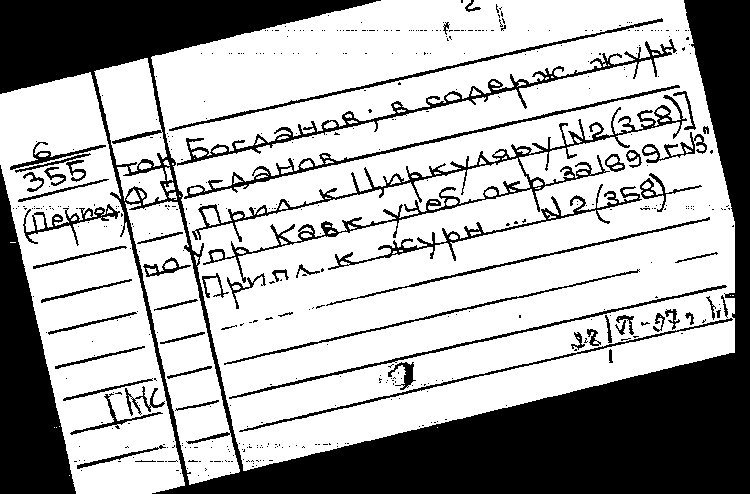 2
6
355
(Период)
тор Богданов; в содерж. журн.:
Ф. Богданов.
"Прил. к Циркуляру [N2 (358)]
по Упр. Кавк. учеб. окр. за 1899 г. N3".
Припл. к журн. ... N2 (358).
28/VI-97 г.
ГАК